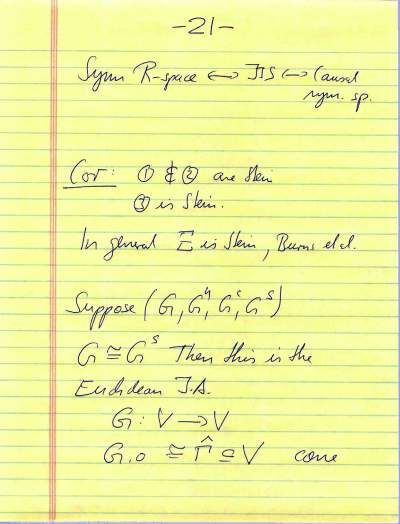 -21-
Symm R-space ↔ JTS ↔ Causal
sym. sp.
Cor: ① & ② are Stein
③ is Stein.
In general Ξ is Stein, Burns et al.
Suppose (G, Gʰ, Gᶜ, Gˢ)
G ≅ Gˢ Then this is the
Euclidean J.A.
G: V → V
G.o ≅ Γ̂ ⊆ V cone